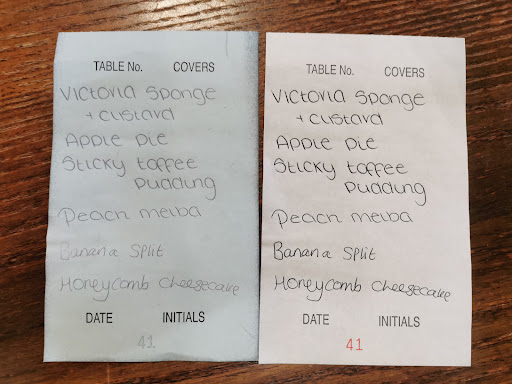 TABLE No. COVERS
Victoria Sponge
+ custard
Apple Pie
Sticky toffee
Pudding
Peach melba
Banana Split
Honeycomb Cheesecake
DATE INITIALS
41
TABLE No. COVERS
Victoria Sponge
+ custard
Apple Pie
Sticky toffee
Pudding
Peach melba
Banana Split
Honeycomb Cheesecake
DATE INITIALS
41